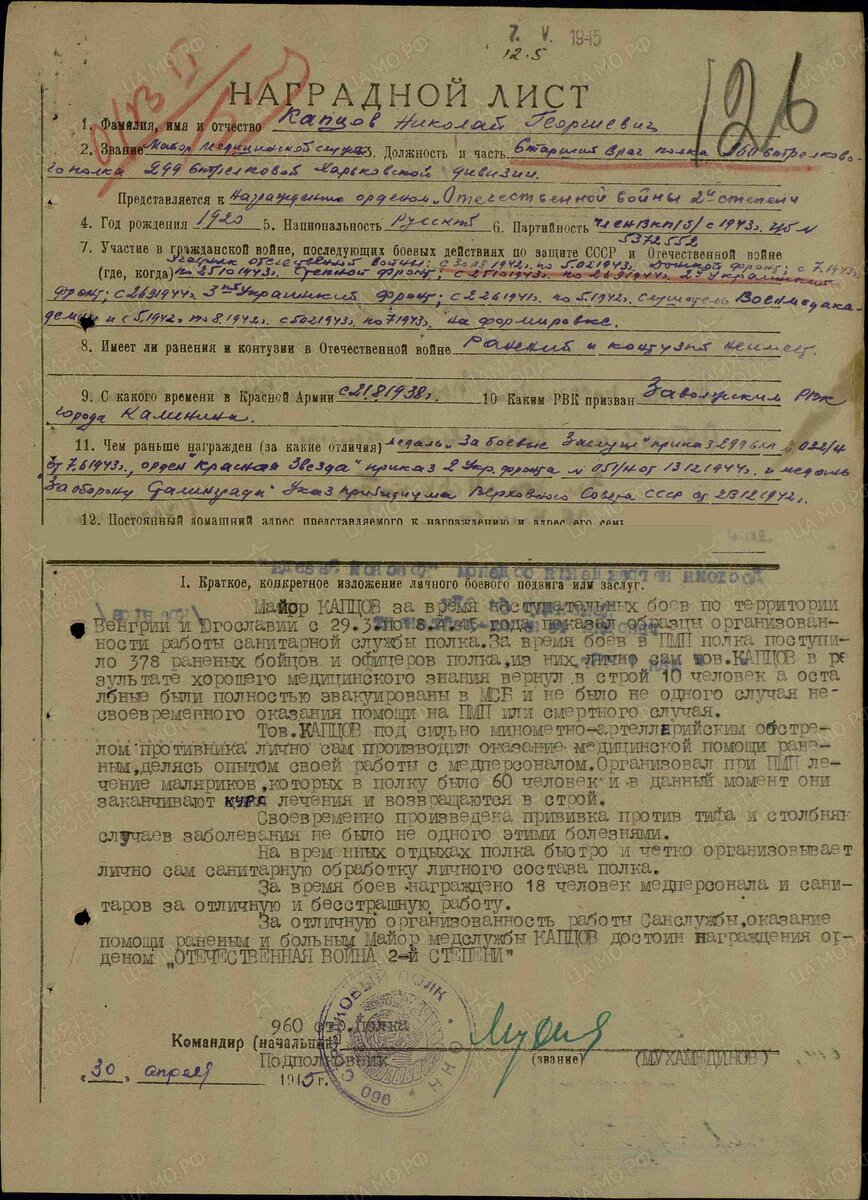 7. V. 1945
12.5
126
НАГРАДНОЙ ЛИСТ
1. Фамилия, имя и отчество Капцов Николай Георгиевич
2. Звание Майор медицинской службы 3. Должность и часть Старший врач полка 960 стрелково-
го полка 299 стрелковой Харьковской дивизии.
Представляется к Награждению орденом „Отечественной войны 2й степени
4. Год рождения 1920 5. Национальность Русский 6. Партийность член ВКП(б) с 1943г. чб №
5372552
7. Участие в гражданской войне, последующих боевых действиях по защите СССР и Отечественной войне
Участник отечественной войны: с 30.08.1942г. по 5.02.1943г. Донской фронт; с 7.1943г.
(где, когда) по 25.10.1943г. Степной фронт; с 25.10.1943г. по 26.9.1944г. 2й Украинский
фронт; с 26.9.1944г. 3ий Украинский фронт; с 22.6.1941г. по 5.1942г. слушатель Воен медака-
демии и с 5.1942г. по 8.1942г. с 5.02.1943г. по 7.1943г. на формировке.
8. Имеет ли ранения и контузии в Отечественной войне Ранений и контузий не имеет.
9. С какого времени в Красной Армии с 21.8.1938г. 10 Каким РВК призван Заволжским РВК
города Калинина.
11. Чем раньше награжден (за какие отличия) медаль „За боевые Заслуги" приказ 299 № 032/н
от 7.6.1943г., орден "Красная Звезда" приказ 2 Укр. фронта № 051/н от 13.12.1944г. и медаль
„За оборону Сталинграда" Указ Президиума Верховного Совета СССР от 23.12.1942г.
12. Постоянный домашний адрес представляемого к награждению и адрес его семь
I. Краткое, конкретное изложение личного боевого подвига или заслуг.
Майор КАПЦОВ за время наступательных боев по территории
Венгрии и Югославии с 29.3 по 8.4.45 года показал образцы организован-
ности работы санитарной службы полка.За время боев в ПМП полка поступи-
ло 378 раненых бойцов и офицеров полка,из них лично сам тов.КАПЦОВ в ре
зультате хорошего медицинского знания вернул в строй 10 человек а оста
льные были полностью эвакуированы в МСБ и не было не одного случая не-
своевременного оказания помощи на ПМП или смертного случая.
Тов.КАПЦОВ под сильно минометно-артеллерийским обстре-
лом противника лично сам производил оказание медицинской помощи ране-
ным,делясь опытом своей работы с медперсоналом.Организовал при ПМП ле-
чение маляриков,которых в полку было 60 человек и в данный момент они
заканчивают курс лечения и возвращаются в строй.
Своевременно произведена прививка против тифа и столбняк
случаев заболевания не было не одного этими болезнями.
На временных отдыхах полка быстро и четко организовывает
лично сам санитарную обработку личного состава полка.
За время боев награждено 18 человек медперсонала и сани-
таров за отличную и бесстрашную работу.
За отличную организованность работы Санслужбы,оказание
помощи раненым и больным Майор медслужбы КАПЦОВ достоин награждения ор-
деном „ОТЕЧЕСТВЕННАЯ ВОЙНА 2-й СТЕПЕНИ"
960 стр.полка
Командир (начальник)
Подполковник (звание) (МУХАМЕДИНОВ)
„30" апреля 1945г.
СТРЕЛКОВЫЙ ПОЛК * НКО * 960
ЦАМО.РФ